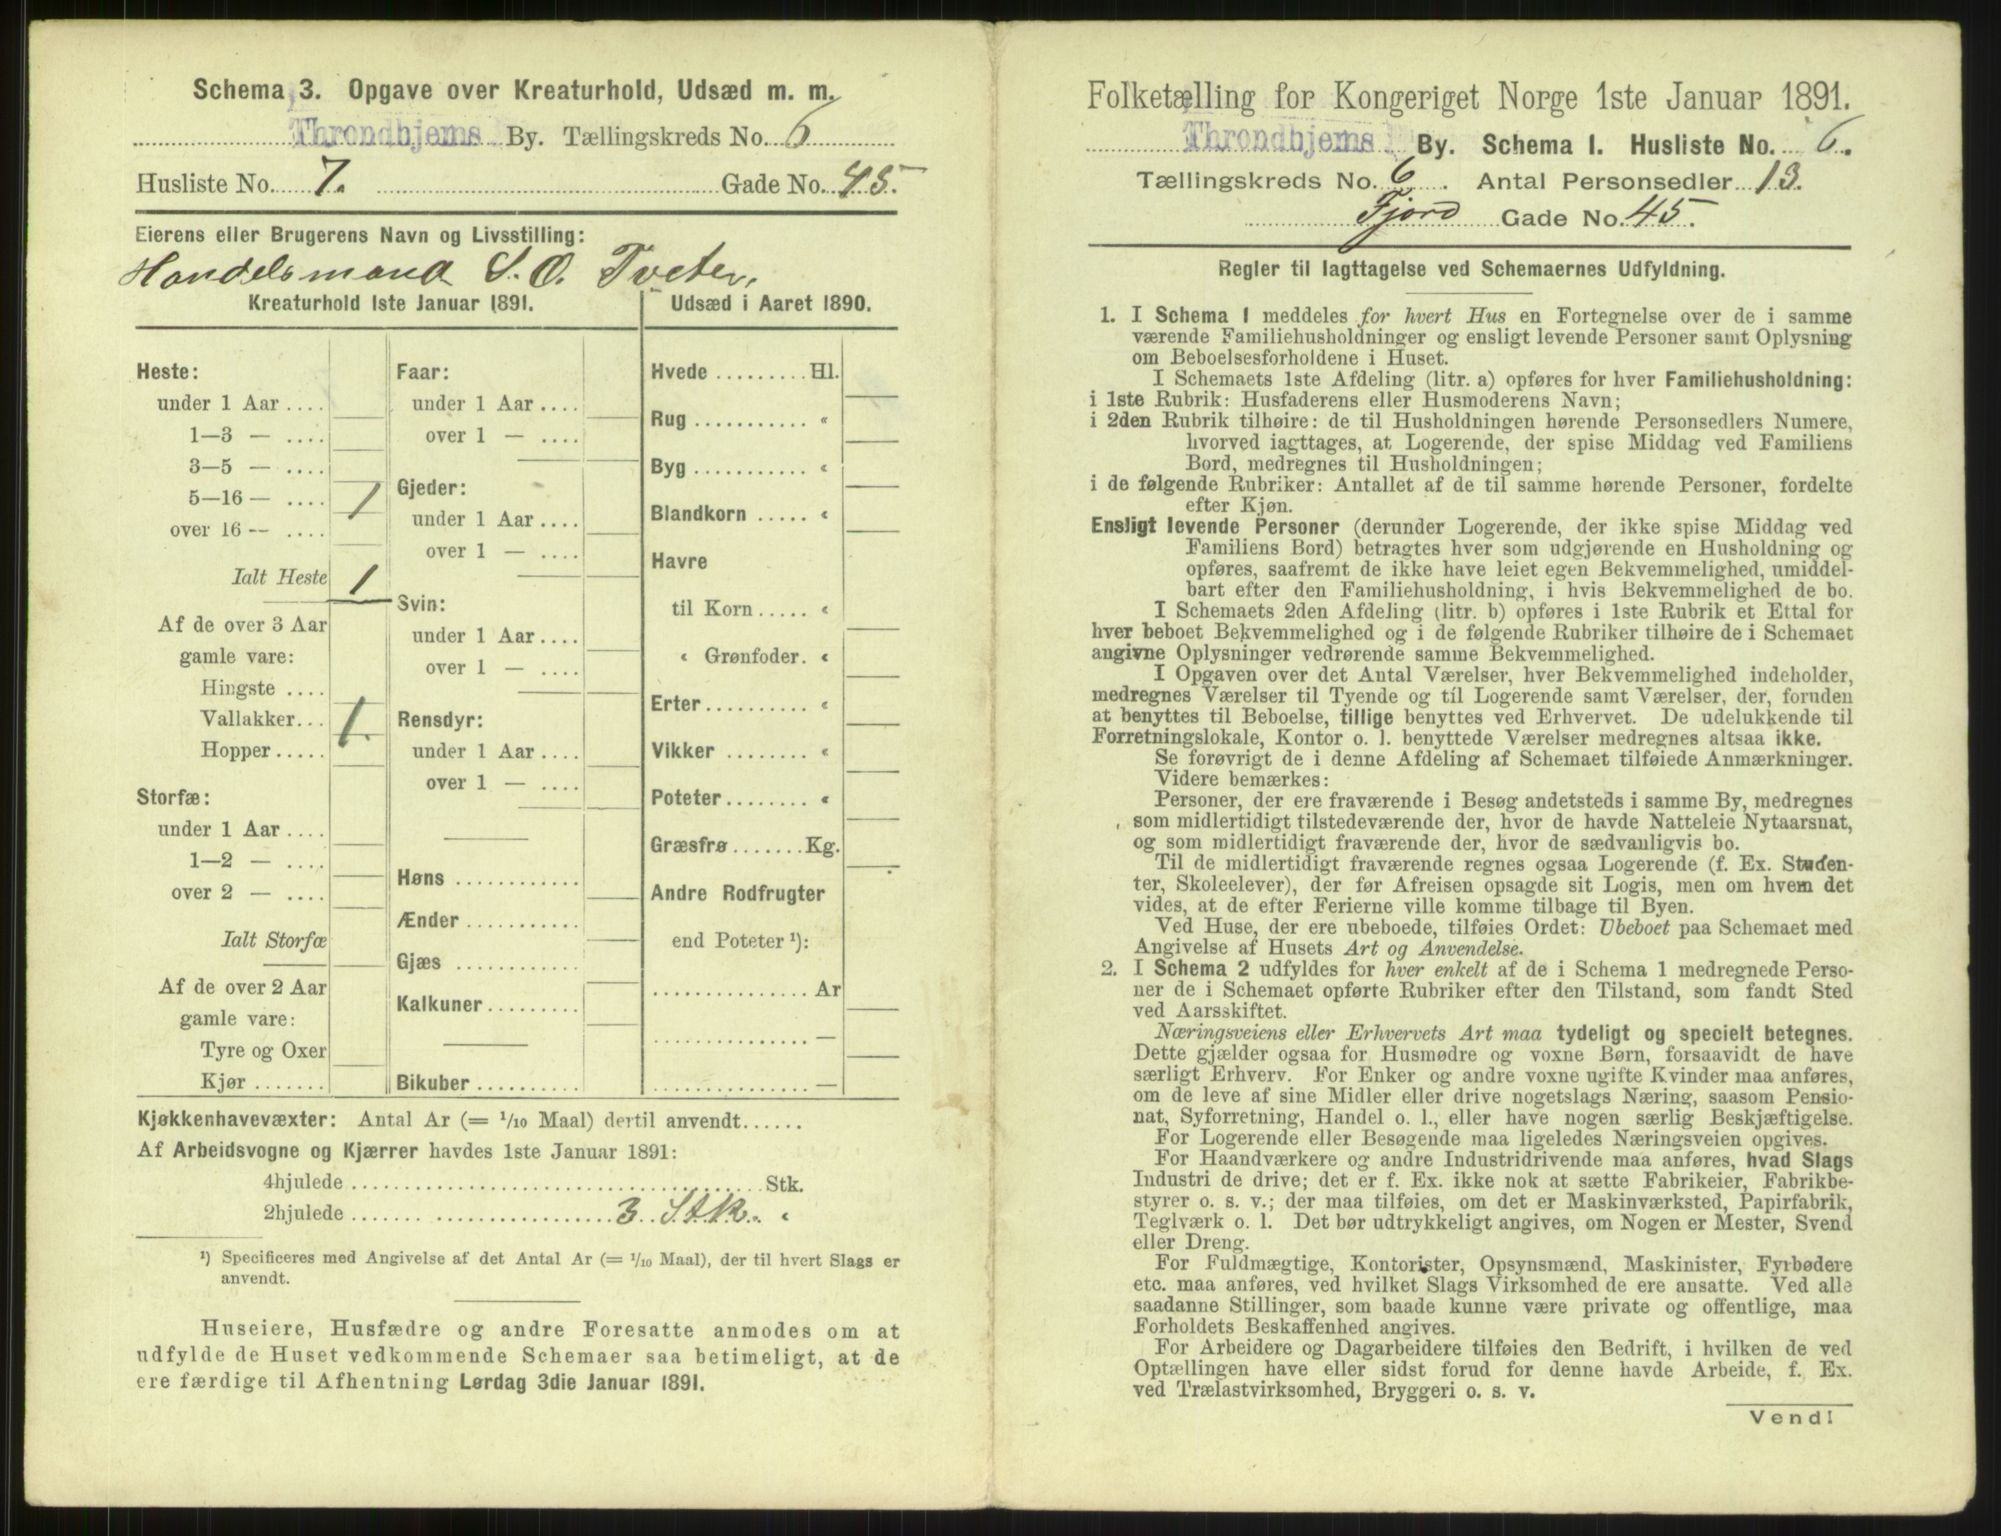 Schema 3. Opgave over Kreaturhold, Udsæd m. m.
Throndhjems By. Tællingskreds No. 6
Husliste No. 7. Gade No. 45.
Eierens eller Brugerens Navn og Livsstilling:
Handelsmand S. O. Tveter.
Kreaturhold 1ste Januar 1891.
Heste:
under 1 Aar ....
1—3 — ....
3—5 — ....
5—16 — .... 1
over 16 — ....
Ialt Heste 1
Af de over 3 Aar
gamle vare:
Hingste ....
Vallakker... 1.
Hopper .....
Storfæ:
under 1 Aar ....
1—2 — ....
over 2 — ....
Ialt Storfæ
Af de over 2 Aar
gamle vare:
Tyre og Oxer
Kjør .......
Faar:
under 1 Aar ....
over 1 — ....
Gjeder:
under 1 Aar ....
over 1 — ....
Svin:
under 1 Aar ....
over 1 — ....
Rensdyr:
under 1 Aar ....
over 1 — ....
Høns ............
Ænder ...........
Gjæs ............
Kalkuner .........
Bikuber ..........
Udsæd i Aaret 1890.
Hvede ......... Hl.
Rug ........... «
Byg ........... «
Blandkorn ..... «
Havre
til Korn ..... «
« Grønfoder. «
Erter .......... «
Vikker ......... «
Poteter ........ «
Græsfrø ....... Kg.
Andre Rodfrugter
end Poteter ¹):
............... Ar
............... —
............... —
Kjøkkenhavevæxter: Antal Ar (= 1/10 Maal) dertil anvendt......
Af Arbeidsvogne og Kjærrer havdes 1ste Januar 1891:
4hjulede ........................................ Stk.
2hjulede ....... .................. 3 Stk. «
¹) Specificeres med Angivelse af det Antal Ar (= 1/10 Maal), der til hvert Slags er
anvendt.
Huseiere, Husfædre og andre Foresatte anmodes om at
udfylde de Huset vedkommende Schemaer saa betimeligt, at de
ere færdige til Afhentning Lørdag 3die Januar 1891.
Folketælling for Kongeriget Norge 1ste Januar 1891.
Throndhjems By. Schema 1. Husliste No. 6.
Tællingskreds No. 6. Antal Personsedler 13.
Fjord Gade No. 45.
Regler til Iagttagelse ved Schemaernes Udfyldning.
1. I Schema 1 meddeles for hvert Hus en Fortegnelse over de i samme
værende Familiehusholdninger og ensligt levende Personer samt Oplysning
om Beboelsesforholdene i Huset.
I Schemaets 1ste Afdeling (litr. a) opføres for hver Familiehusholdning:
i 1ste Rubrik: Husfaderens eller Husmoderens Navn;
i 2den Rubrik tilhøire: de til Husholdningen hørende Personsedlers Numere,
hvorved iagttages, at Logerende, der spise Middag ved Familiens
Bord, medregnes til Husholdningen;
i de følgende Rubriker: Antallet af de til samme hørende Personer, fordelte
efter Kjøn.
Ensligt levende Personer (derunder Logerende, der ikke spise Middag ved
Familiens Bord) betragtes hver som udgjørende en Husholdning og
opføres, saafremt de ikke have leiet egen Bekvemmelighed, umiddel-
bart efter den Familiehusholdning, i hvis Bekvemmelighed de bo.
I Schemaets 2den Afdeling (litr. b) opføres i 1ste Rubrik et Ettal for
hver beboet Bekvemmelighed og i de følgende Rubriker tilhøire de i Schemaet
angivne Oplysninger vedrørende samme Bekvemmelighed.
I Opgaven over det Antal Værelser, hver Bekvemmelighed indeholder,
medregnes Værelser til Tyende og til Logerende samt Værelser, der, foruden
at benyttes til Beboelse, tillige benyttes ved Erhvervet. De udelukkende til
Forretningslokale, Kontor o. l. benyttede Værelser medregnes altsaa ikke.
Se forøvrigt de i denne Afdeling af Schemaet tilføiede Anmærkninger.
Videre bemærkes:
Personer, der ere fraværende i Besøg andetsteds i samme By, medregnes
som midlertidigt tilstedeværende der, hvor de havde Natteleie Nytaarsnat,
og som midlertidigt fraværende der, hvor de sædvanligvis bo.
Til de midlertidigt fraværende regnes ogsaa Logerende (f. Ex. Studen-
ter, Skoleelever), der før Afreisen opsagde sit Logis, men om hvem det
vides, at de efter Ferierne ville komme tilbage til Byen.
Ved Huse, der ere ubeboede, tilføies Ordet: Ubeboet paa Schemaet med
Angivelse af Husets Art og Anvendelse.
2. I Schema 2 udfyldes for hver enkelt af de i Schema 1 medregnede Perso-
ner de i Schemaet opførte Rubriker efter den Tilstand, som fandt Sted
ved Aarsskiftet.
Næringsveiens eller Erhvervets Art maa tydeligt og specielt betegnes.
Dette gjælder ogsaa for Husmødre og voxne Børn, forsaavidt de have
særligt Erhverv. For Enker og andre voxne ugifte Kvinder maa anføres,
om de leve af sine Midler eller drive nogetslags Næring, saasom Pensio-
nat, Syforretning, Handel o. l., eller have nogen særlig Beskjæftigelse.
For Logerende eller Besøgende maa ligeledes Næringsveien opgives.
For Haandværkere og andre Industridrivende maa anføres, hvad Slags
Industri de drive; det er f. Ex. ikke nok at sætte Fabrikeier, Fabrikbe-
styrer o. s. v.; der maa tilføies, om det er Maskinværksted, Papirfabrik,
Teglværk o. l. Det bør udtrykkeligt angives, om Nogen er Mester, Svend
eller Dreng.
For Fuldmægtige, Kontorister, Opsynsmænd, Maskinister, Fyrbødere
etc. maa anføres, ved hvilket Slags Virksomhed de ere ansatte. Ved alle
saadanne Stillinger, som baade kunne være private og offentlige, maa
Forholdets Beskaffenhed angives.
For Arbeidere og Dagarbeidere tilføies den Bedrift, i hvilken de ved
Optællingen have eller sidst forud for denne havde Arbeide, f. Ex.
ved Trælastvirksomhed, Bryggeri o. s. v.
Vend!